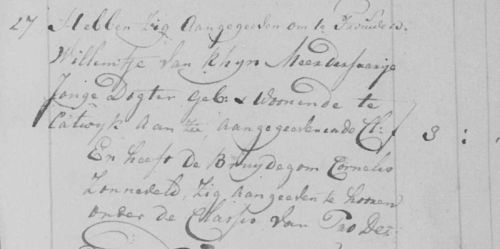 27 Hebben zig aangegeeven om te Trouwen.
Willemtje van Rhijn Meerderjaarige
Jonge Dogter Geb: & Woonende te
Catwijk aan Zee, aangegeeven de Cl: ƒ 3 : ,
En heeft de Bruydegom Cornelis
Zonneveld, zig aangeeven te hooren
onder de Classis van Pro De: